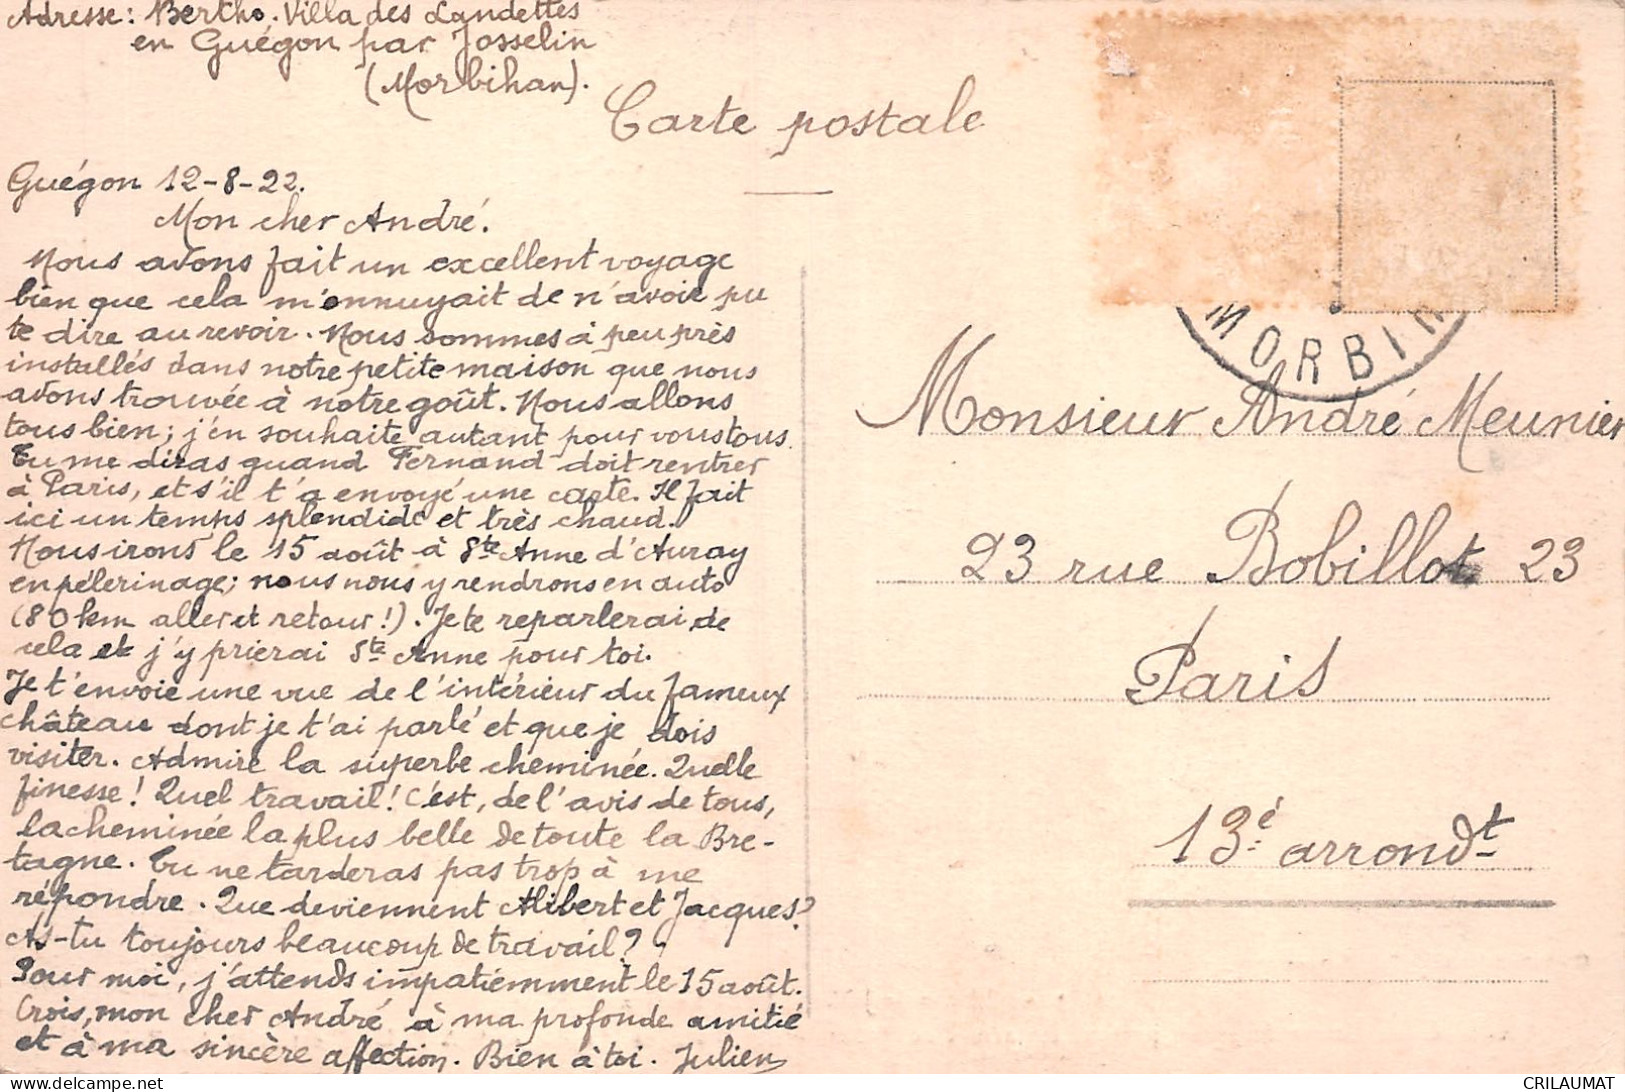 Adresse: Bertho. Villa des Landettes
en Guégon par Josselin
(Morbihan).
Carte postale
Guégon 12-8-22.
Mon cher André.
Nous avons fait un excellent voyage
bien que cela m'ennuyait de n'avoir pu
te dire au revoir. Nous sommes à peu près
installés dans notre petite maison que nous
avons trouvée à notre goût. Nous allons
tous bien; j'en souhaite autant pour vous tous.
Tu me diras quand Fernand doit rentrer
à Paris, et s'il t'a envoyé une carte. Il fait
ici un temps splendide et très chaud.
Nous irons le 15 août à Ste Anne d'Auray
en pélerinage; nous nous y rendrons en auto
(80 km aller et retour!). Je te reparlerai de
cela et j'y prierai Ste Anne pour toi.
Je t'envoie une vue de l'intérieur du fameux
château dont je t'ai parlé et que je dois
visiter. Admire la superbe cheminée. Quelle
finesse! Quel travail! C'est, de l'avis de tous,
la cheminée la plus belle de toute la Bre-
tagne. Tu ne tarderas pas trop à me
répondre. Que deviennent Alibert et Jacques?
As-tu toujours beaucoup de travail?
Pour moi, j'attends impatiemment le 15 août.
Crois, mon cher André à ma profonde amitié
et à ma sincère affection. Bien à toi. Julien
MORBIH
Monsieur André Meunier
23 rue Bobillot 23
Paris
13è arrondt
CRILAUMAT